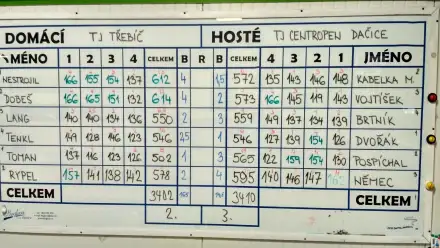 DOMÁCÍ TJ TŘEBÍČ HOSTÉ TJ CENTROPEN DAČICE
MÉNO 1 2 3 4 CELKEM B R B CELKEM 4 3 2 1 JMÉNO
NESTROJIL 166 155 154 137 612 4 1,5 572 135 143 146 148 KABELKA M.
DOBEŠ 166 165 151 132 614 4 2 573 166 145 119 143 VOJTÍŠEK
LANG 140 140 134 136 550 2 3 559 149 137 134 139 BRTNÍK
TENKL 149 128 146 123 546 2,5 1 546 127 139 154 126 DVOŘÁK
TOMAN 137 116 123 126 502 1 3 565 122 159 154 130 POSPÍCHAL
RYPEL 157 141 138 142 578 2 4 595 140 146 147 162 NĚMEC
CELKEM 3402 3410 CELKEM
2. 3.